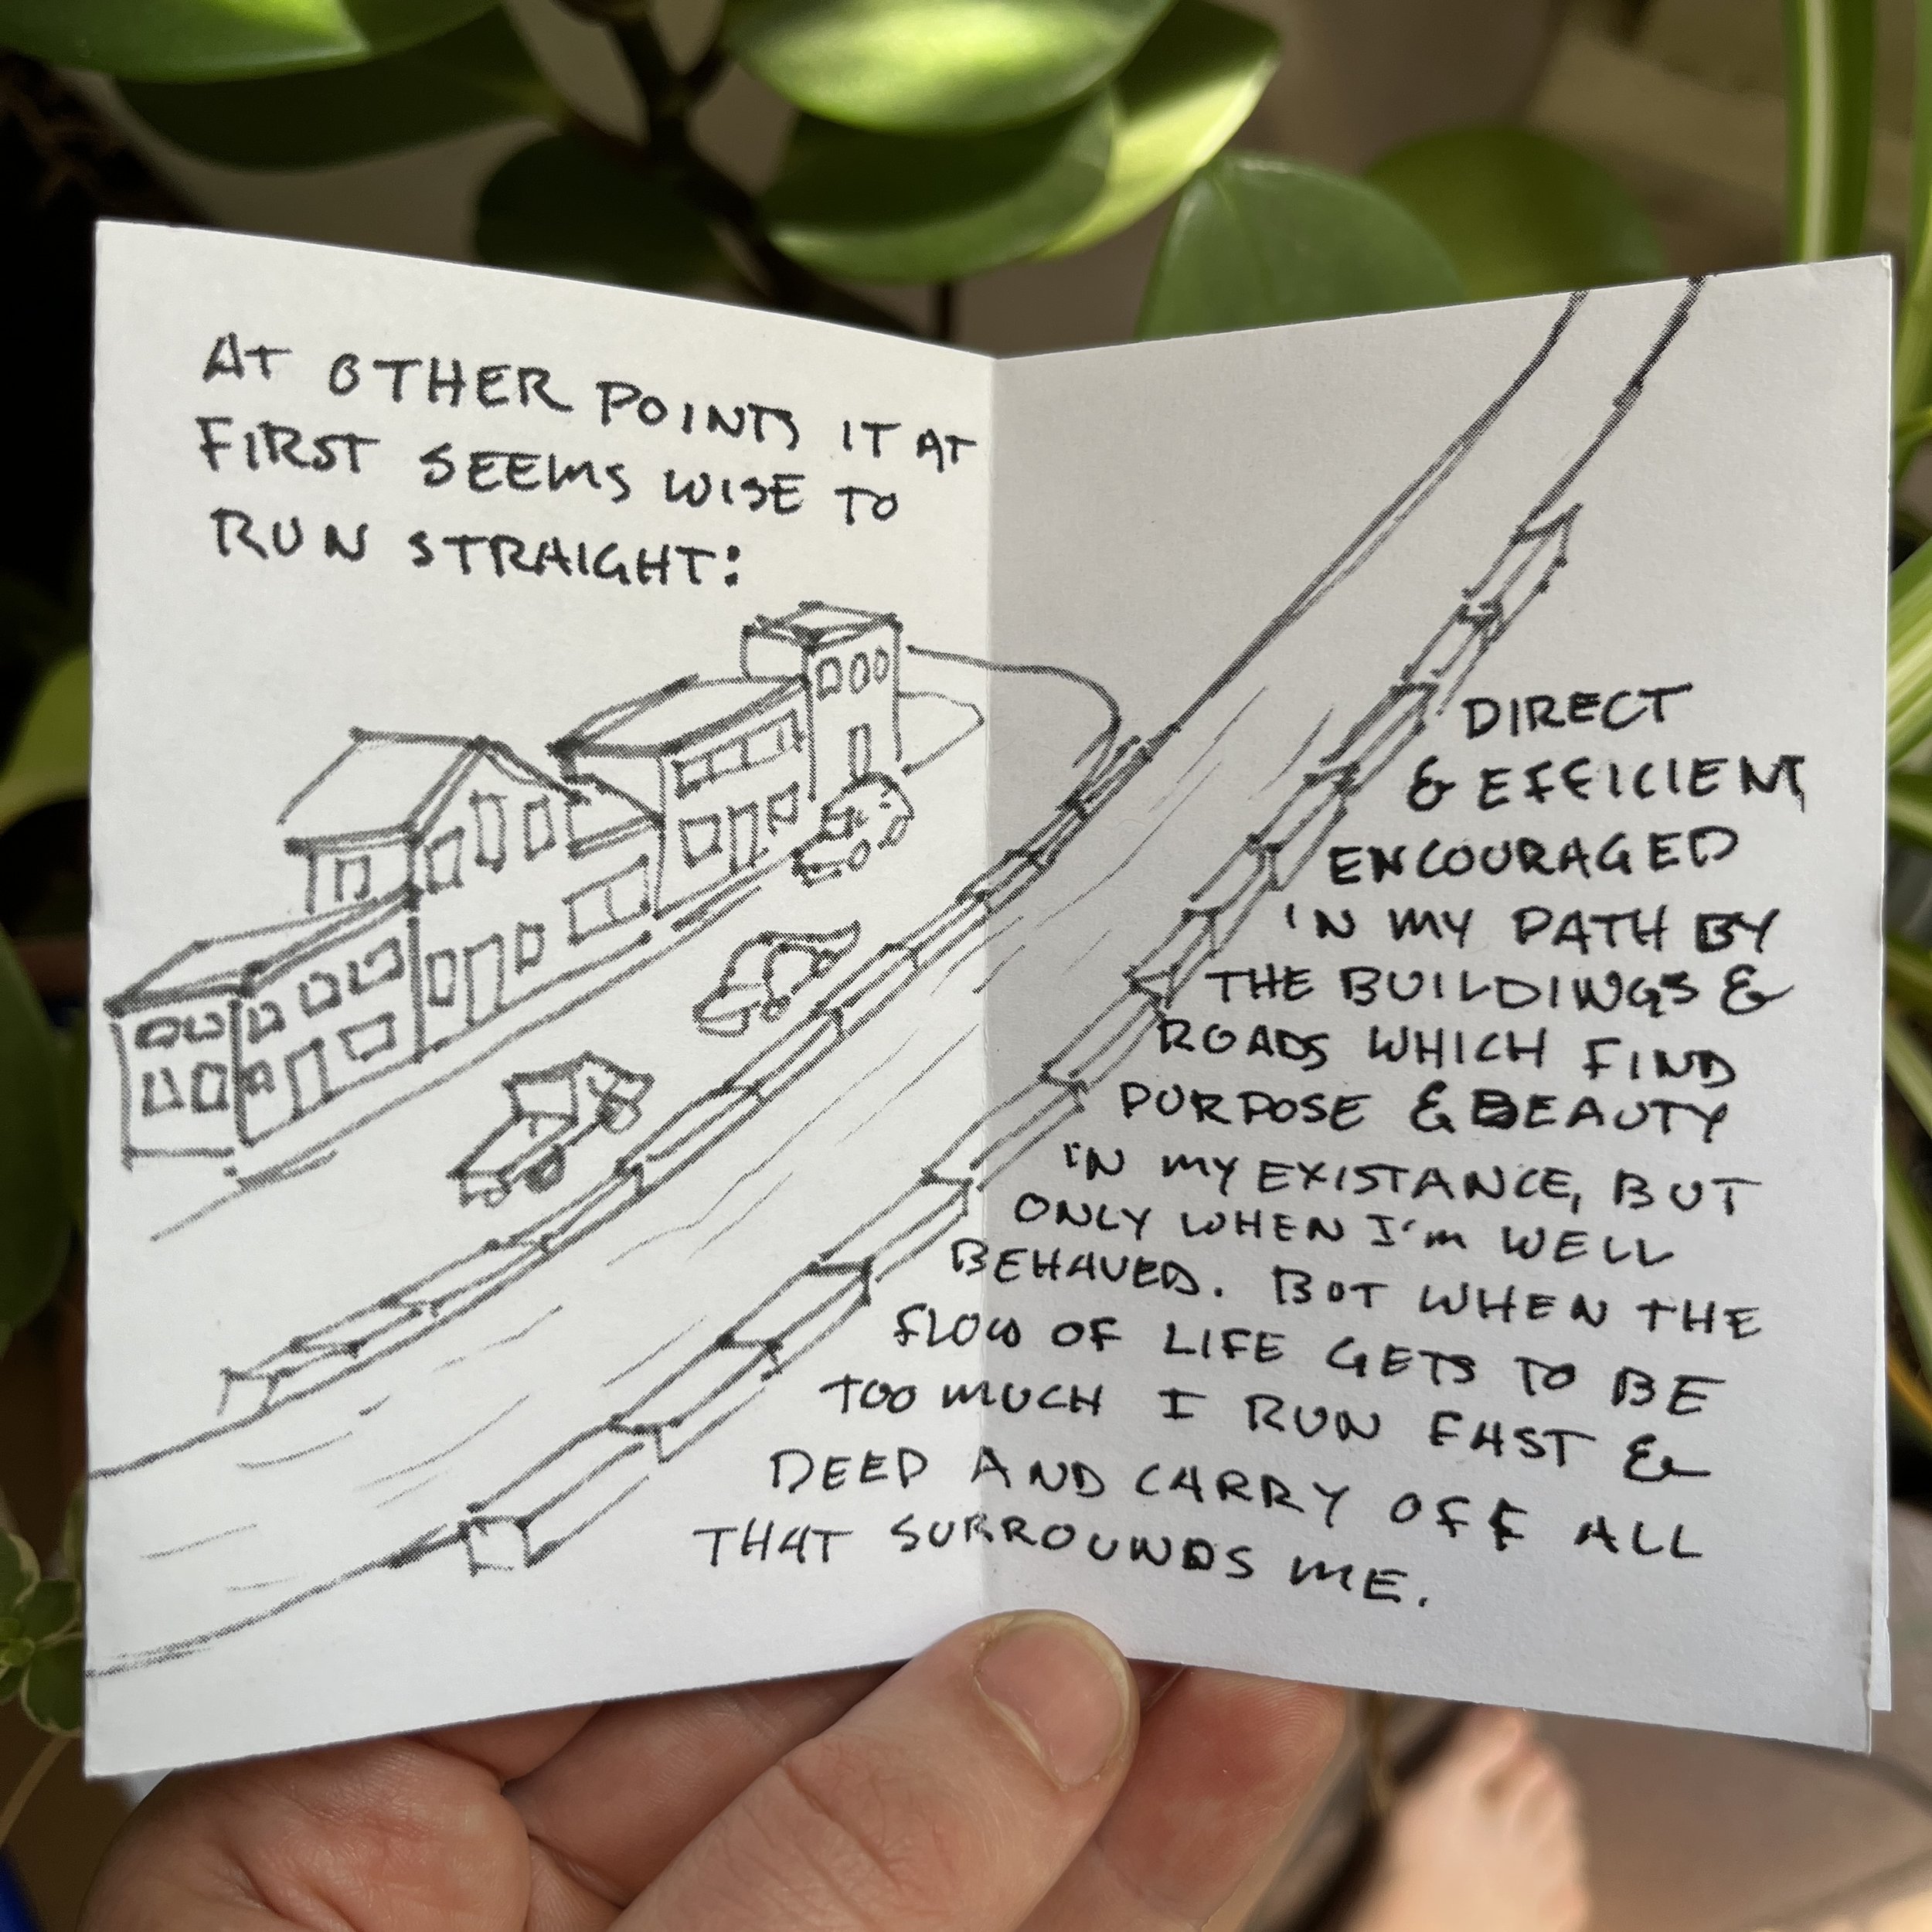 AT OTHER POINTS IT AT
FIRST SEEMS WISE TO
RUN STRAIGHT:
DIRECT
& EFFICIENT,
ENCOURAGED
IN MY PATH BY
THE BUILDINGS &
ROADS WHICH FIND
PURPOSE & BEAUTY
IN MY EXISTANCE, BUT
ONLY WHEN I'M WELL
BEHAVED. BUT WHEN THE
FLOW OF LIFE GETS TO BE
TOO MUCH I RUN FAST &
DEEP AND CARRY OFF ALL
THAT SURROUNDS ME.